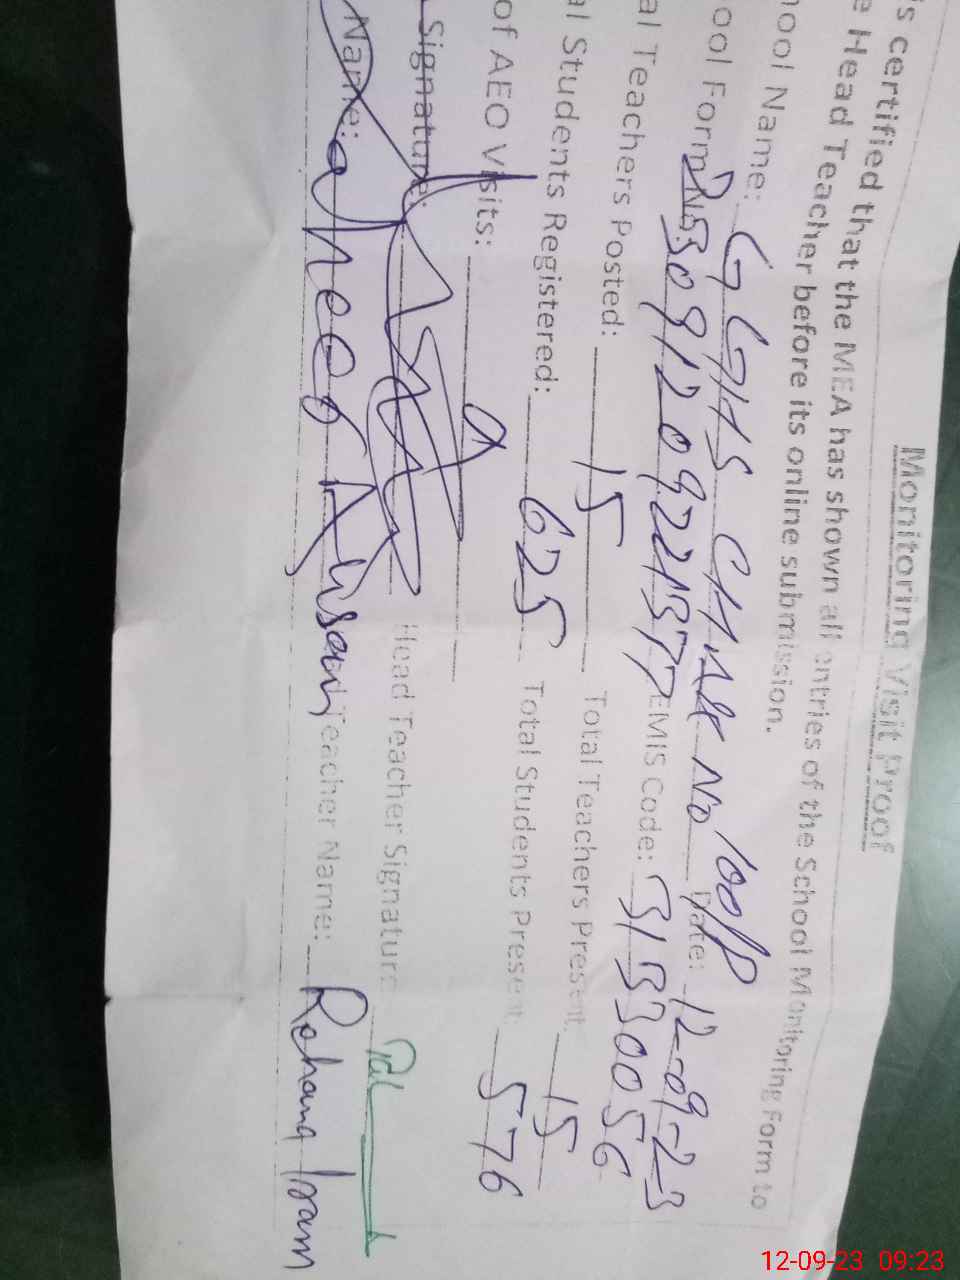 Monitoring Visit Proof
is certified that the MEA has shown all entries of the School Monitoring Form to
e Head Teacher before its online submission.
hool Name: GGHS CHAK No 100/P Date: 12-09-23
ool Form No EMIS Code: 31330056
al Teachers Posted: 15 Total Teachers Present 15
al Students Registered: 625 Total Students Present 576
of AEO Visits:
Signature: Head Teacher Signature
Name: Ahsan Teacher Name: Rohana Iram
12-09-23 09:23